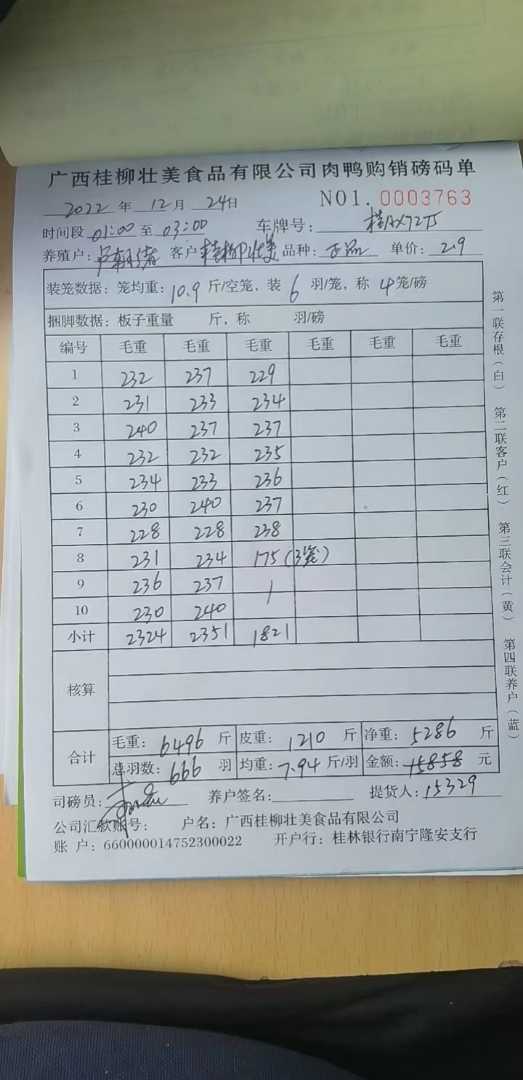 广西桂柳壮美食品有限公司肉鸭购销磅码单
2022 年 12 月 24日 NO1. 0003763
时间段 01:00 至 03:00 车牌号:
养殖户: 客户 桂柳壮美 品种: 正品 单价: 2.9
装笼数据: 笼均重: 10.9 斤/空笼, 装 6 羽/笼, 称 4 笼/磅
捆脚数据: 板子重量 斤, 称 羽/磅
编号 毛重 毛重 毛重 毛重 毛重 毛重
1 232 237 229
2 231 233 234
3 240 237 237
4 232 232 235
5 234 233 236
6 230 240 237
7 228 228 238
8 231 234 175 (3笼)
9 236 237 /
10 230 240
小计 2324 2351 1821
核算
合计 毛重: 6496 斤 皮重: 1210 斤 净重: 5286 斤
总羽数: 666 羽 均重: 7.94 斤/羽 金额: 15858 元
司磅员: 养户签名: 提货人: 15329
公司汇款账号: 户名: 广西桂柳壮美食品有限公司
账 户: 660000014752300022 开户行: 桂林银行南宁隆安支行
第一联存根(白) 第二联客户(红) 第三联会计(黄) 第四联养户(蓝)